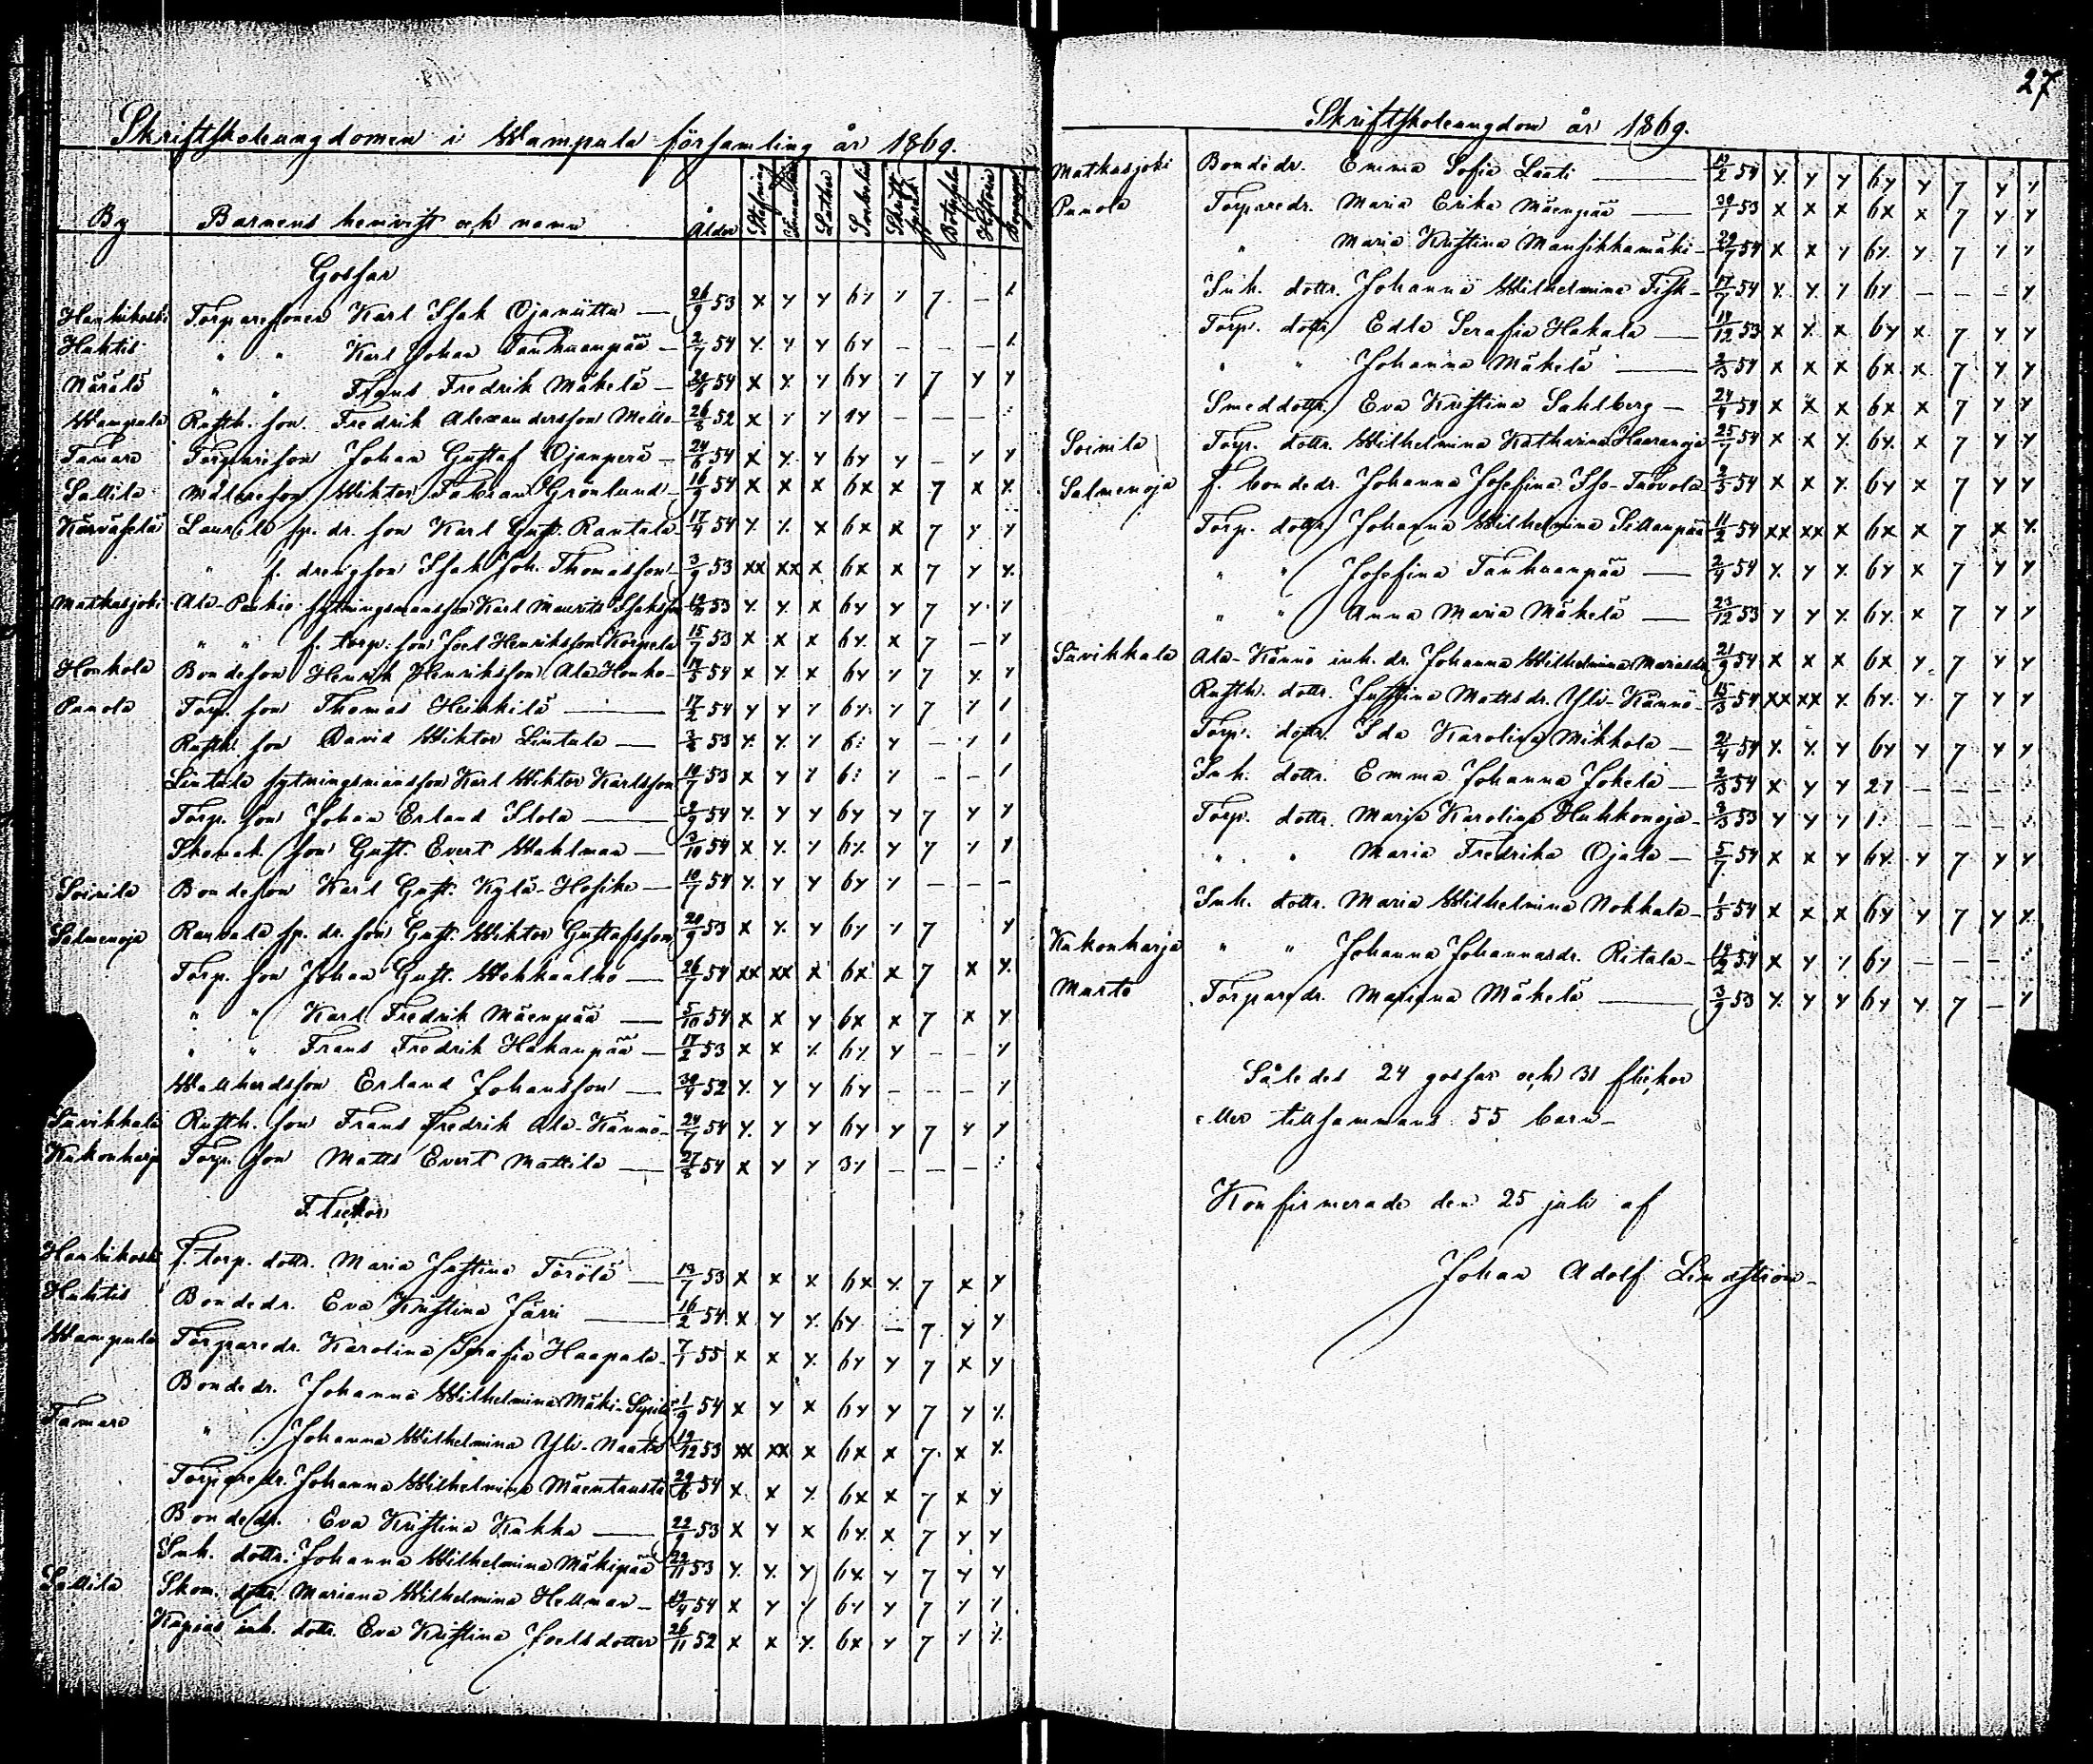 Skriftskoleungdomen i Wampula församling år 1869.
By Barnens hemvist och namn Ålder Stafning Innanläsning Luther Historia Begreppet
Gossar
Hankikoski Torparesonen Karl Isak Ojaniittu — 26/9 53 x y y 6y y 7 —
Huhtis " " Karl Johan Tanhuanpää — 2/7 54 y y y 6y — — —
Närälä " " Frans Fredrik Mäkelä — 54 x y y 6y y 7 y y
Wampula Rusth. son Fredrik Alexandersson Mello — 52 x y y 1y — — —
Tamare Torpareson Johan Gustaf Ojanperä — 24/6 54 x y y 6y y — y y
Sallila Målareson Wiktor Fabian Grönlund — 16/9 54 x x x 6x x 7 x y
Kärväselä Laurila sp. dr. son Karl Gust. Rantala — 17/9 54 y y x 6x x 7 y y
" f. drengson Isak Joh. Thomasson — 3/9 53 xx xx x 6x x 7 y y
Matkusjoki Ala-Paskio sytningsmansson Karl Maurits Isaksson 53 y y x 6y y 7 y y
" " f. torp. son Joel Henriksson Korpela 15/7 53 x x x 6y x 7 — y
Honkola Bondeson Henrik Henriksson Ala Honko — 19/5 54 x y x 6y y 7 y y
Punola Torp. son Thomas Heikkilä — 17/2 54 y y y 6y y 7 y
Rusth. son David Wiktor Lintula — 53 y y y y — y
Lintula sytningsmansson Karl Wiktor Karlsson 53 x y y y — —
Torp. son Johan Erland Ilola — 54 y y y 6y y 7 y y
Skomak. son Gust. Evert Wahlman — 3/10 54 x y y 6y y 7 y y
Soinila Bondeson Karl Gust. Kylä-Hosike — 10/7 54 y y y 6y y — — —
Salmenoja Rauvola sp. dr. son Gust. Wiktor Gustafsson 20/9 53 x y y 6y y 7 y
Torp. son Johan Gust. Wehkaalho — 26/7 54 xx xx x 6x x 7 x y
" " Karl Fredrik Mäenpää — 5/10 54 x x y 6x x 7 x y
" " Frans Fredrik Hakanpää — 17/2 53 x x y 6y y — — y
Wallherdsson Erland Johansson — 30/9 52 y y y 6y — — — y
Sävikkala Rusth. son Frans Fredrik Ala-Kännö — 24/7 54 y y y 6y y 7 y y
Kukonharja Torp. son Matts Evert Mattila — 27/8 54 x y y 3y — — —
Flickor
Hankikoski f. torp. dottr. Maria Justina Törölä — 13/7 53 x x x 6x y 7 x y
Huhtis Bondedr. Eva Kristina Järvi — 16/2 54 x y y 6y — 7 y y
Wampula Torparedr. Karolina Serafia Haapala — 7/1 55 x x y 6y y 7 x y
Bondedr. Johanna Wilhelmina Mäki- 1/9 54 x y x 6y y 7 y y
Tamare " Johanna Wilhelmina Yli-Naatu 19/12 53 xx xx x 6x x 7 x y
Torparedr. Johanna Wilhelmina Mäentausta 29/6 54 x x y 6x x 7 x y
Bondedr. Eva Kristina Kukko — 22/9 53 x y x 6y x 7 y y
Inh. dottr. Johanna Wilhelmina Mäkipää 29/11 53 y y y 6x y 7 y y
Sallila Skom. dottr. Mariana Wilhelmina Hellman — 54 x y y 6y y 7 y y
inh. dottr. Eva Kristina Joelsdotter 26/11 52 x x y 6x y 7 y y
27
Skriftskoleungdom år 1869.
Matkusjoki Bondedr. Emma Sofia Laati — 19/2 54 y y y 6y y 7 y y
Punola Torparedr. Maria Erika Mäenpää — 30/7 53 x x x 6x x 7 y y
" Maria Kristina Mansikkamäki — 29/7 54 x x y 6y y 7 y y
Inh. dottr. Johanna Wilhelmina Fisk — 17/7 54 y y y 6y — — — y
Torp. dottr. Edla Serafia Hakala — 19/12 53 x y x 6y x 7 y y
" " Johanna Mäkelä — 54 x x x 6x x 7 y y
Smeddottr. Eva Kristina Sahlberg — 24/9 54 x x x 6x x 7 y y
Soinila Torp. dottr. Wilhelmina Katharina Haaranoja 25/7 54 x x y 6y x 7 y y
Salmenoja f. bondedr. Johanna Josefina Iso-Tuovola 3/5 54 x x y 6y x 7 y y
Torp. dottr. Johanna Wilhelmina Sillanpää 11/2 54 xx xx x 6x x 7 x y
" " Josefina Tanhuanpää — 2/9 54 y y y 6y x 7 y y
" " Anna Maria Mäkelä — 23/12 53 y y y 6y x 7 y y
Sävikkala Ala-Kännö inh. dr. Johanna Wilhelmina Mariasdr. 21/9 54 x x x 6x y 7 y y
Rusth. dottr. Justina Mattsdr. Yli-Kännö — 15/3 54 xx xx y 6y y 7 y y
Torp. dottr. Ida Karolina Mikkola — 21/4 54 y y y 6y y 7 y y
Inh. dottr. Emma Johanna Jokela — 2/3 54 x y y 2y — — —
Torp. dottr. Maria Karolina Huhkonoja — 3/3 53 y y y — — —
" " Maria Fredrika Ojala — 5/7 54 x x y 6y y 7 y y
Inh. dottr. Maria Wilhelmina Nokkala — 1/5 54 x x x 6y y 7 y y
Kukonharja " " Johanna Johannasdr. Ritala — 54 x y y 6y — — —
Murto Torparedr. Mariana Mäkelä — 3/9 53 y y y 6y y 7 — y
Således 24 gossar och 31 flickor
eller tillsammans 55 barn —
Konfirmerade den 25 juli af
Johan Adolf Lindström —